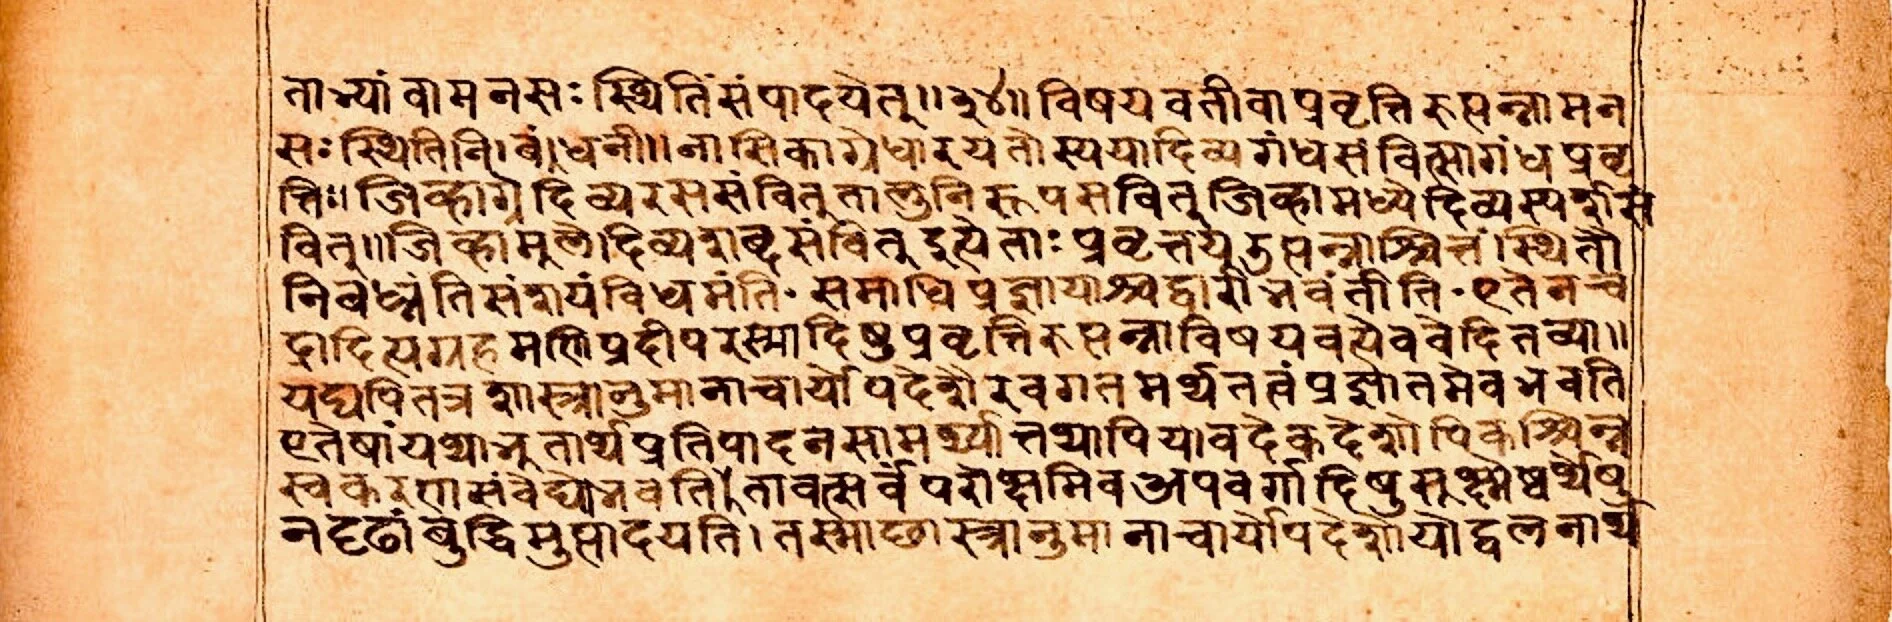 ताभ्यां वा मनसः स्थितिं संपादयेतु॥३४॥ विषयवती वा प्रवृत्तिरुत्पन्ना मन
सः स्थितिनिबंधनी॥ नासिकाग्रे धारयतोस्य या दिव्यगंधसंवित्सा गंधप्रवृ
त्तिः॥ जिव्हाग्रे दिव्यरससंवितु तालुनि रूपसवितु जिव्हामध्ये दिव्यस्पर्शसं
वितु॥ जिव्हामुले दिव्यशब्दसंवितु दुत्येताः प्रवृत्तयु उत्पन्नाश्चित्तं स्थितौ
निबध्नंति संशयं विधमंति॰ समाधिप्रज्ञायाश्च द्वारीभवंतीति॰ एतेन चं
द्रादित्यग्रहमणिप्रदीपरस्मादिषु प्रवृत्तिरुत्पन्ना विषयवत्येव वेदितव्या॥
यद्यपि तत्र शास्त्रानुमानाचार्योपदेशैरवगतमर्थतत्वं प्रज्ञोतमेव भवति
एतेषां यथाभुतार्थप्रतिपादनसामर्थ्यात्तथापि यावदेकदेशोपि कश्चिन्न
स्वकरणसंवेद्यो भवति। तावत्सर्वं परोक्षमिव अपवर्गादिषु सुक्ष्मेष्वर्थेषु
न दृढां बुद्धिमुत्पादयति। तस्माछास्त्रानुमानाचार्योपदेशोयोद्वलनार्थ